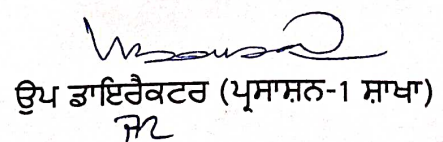 ਉਪ ਡਾਇਰੈਕਟਰ (ਪ੍ਰਸਾਸ਼ਨ-1 ਸ਼ਾਖਾ)